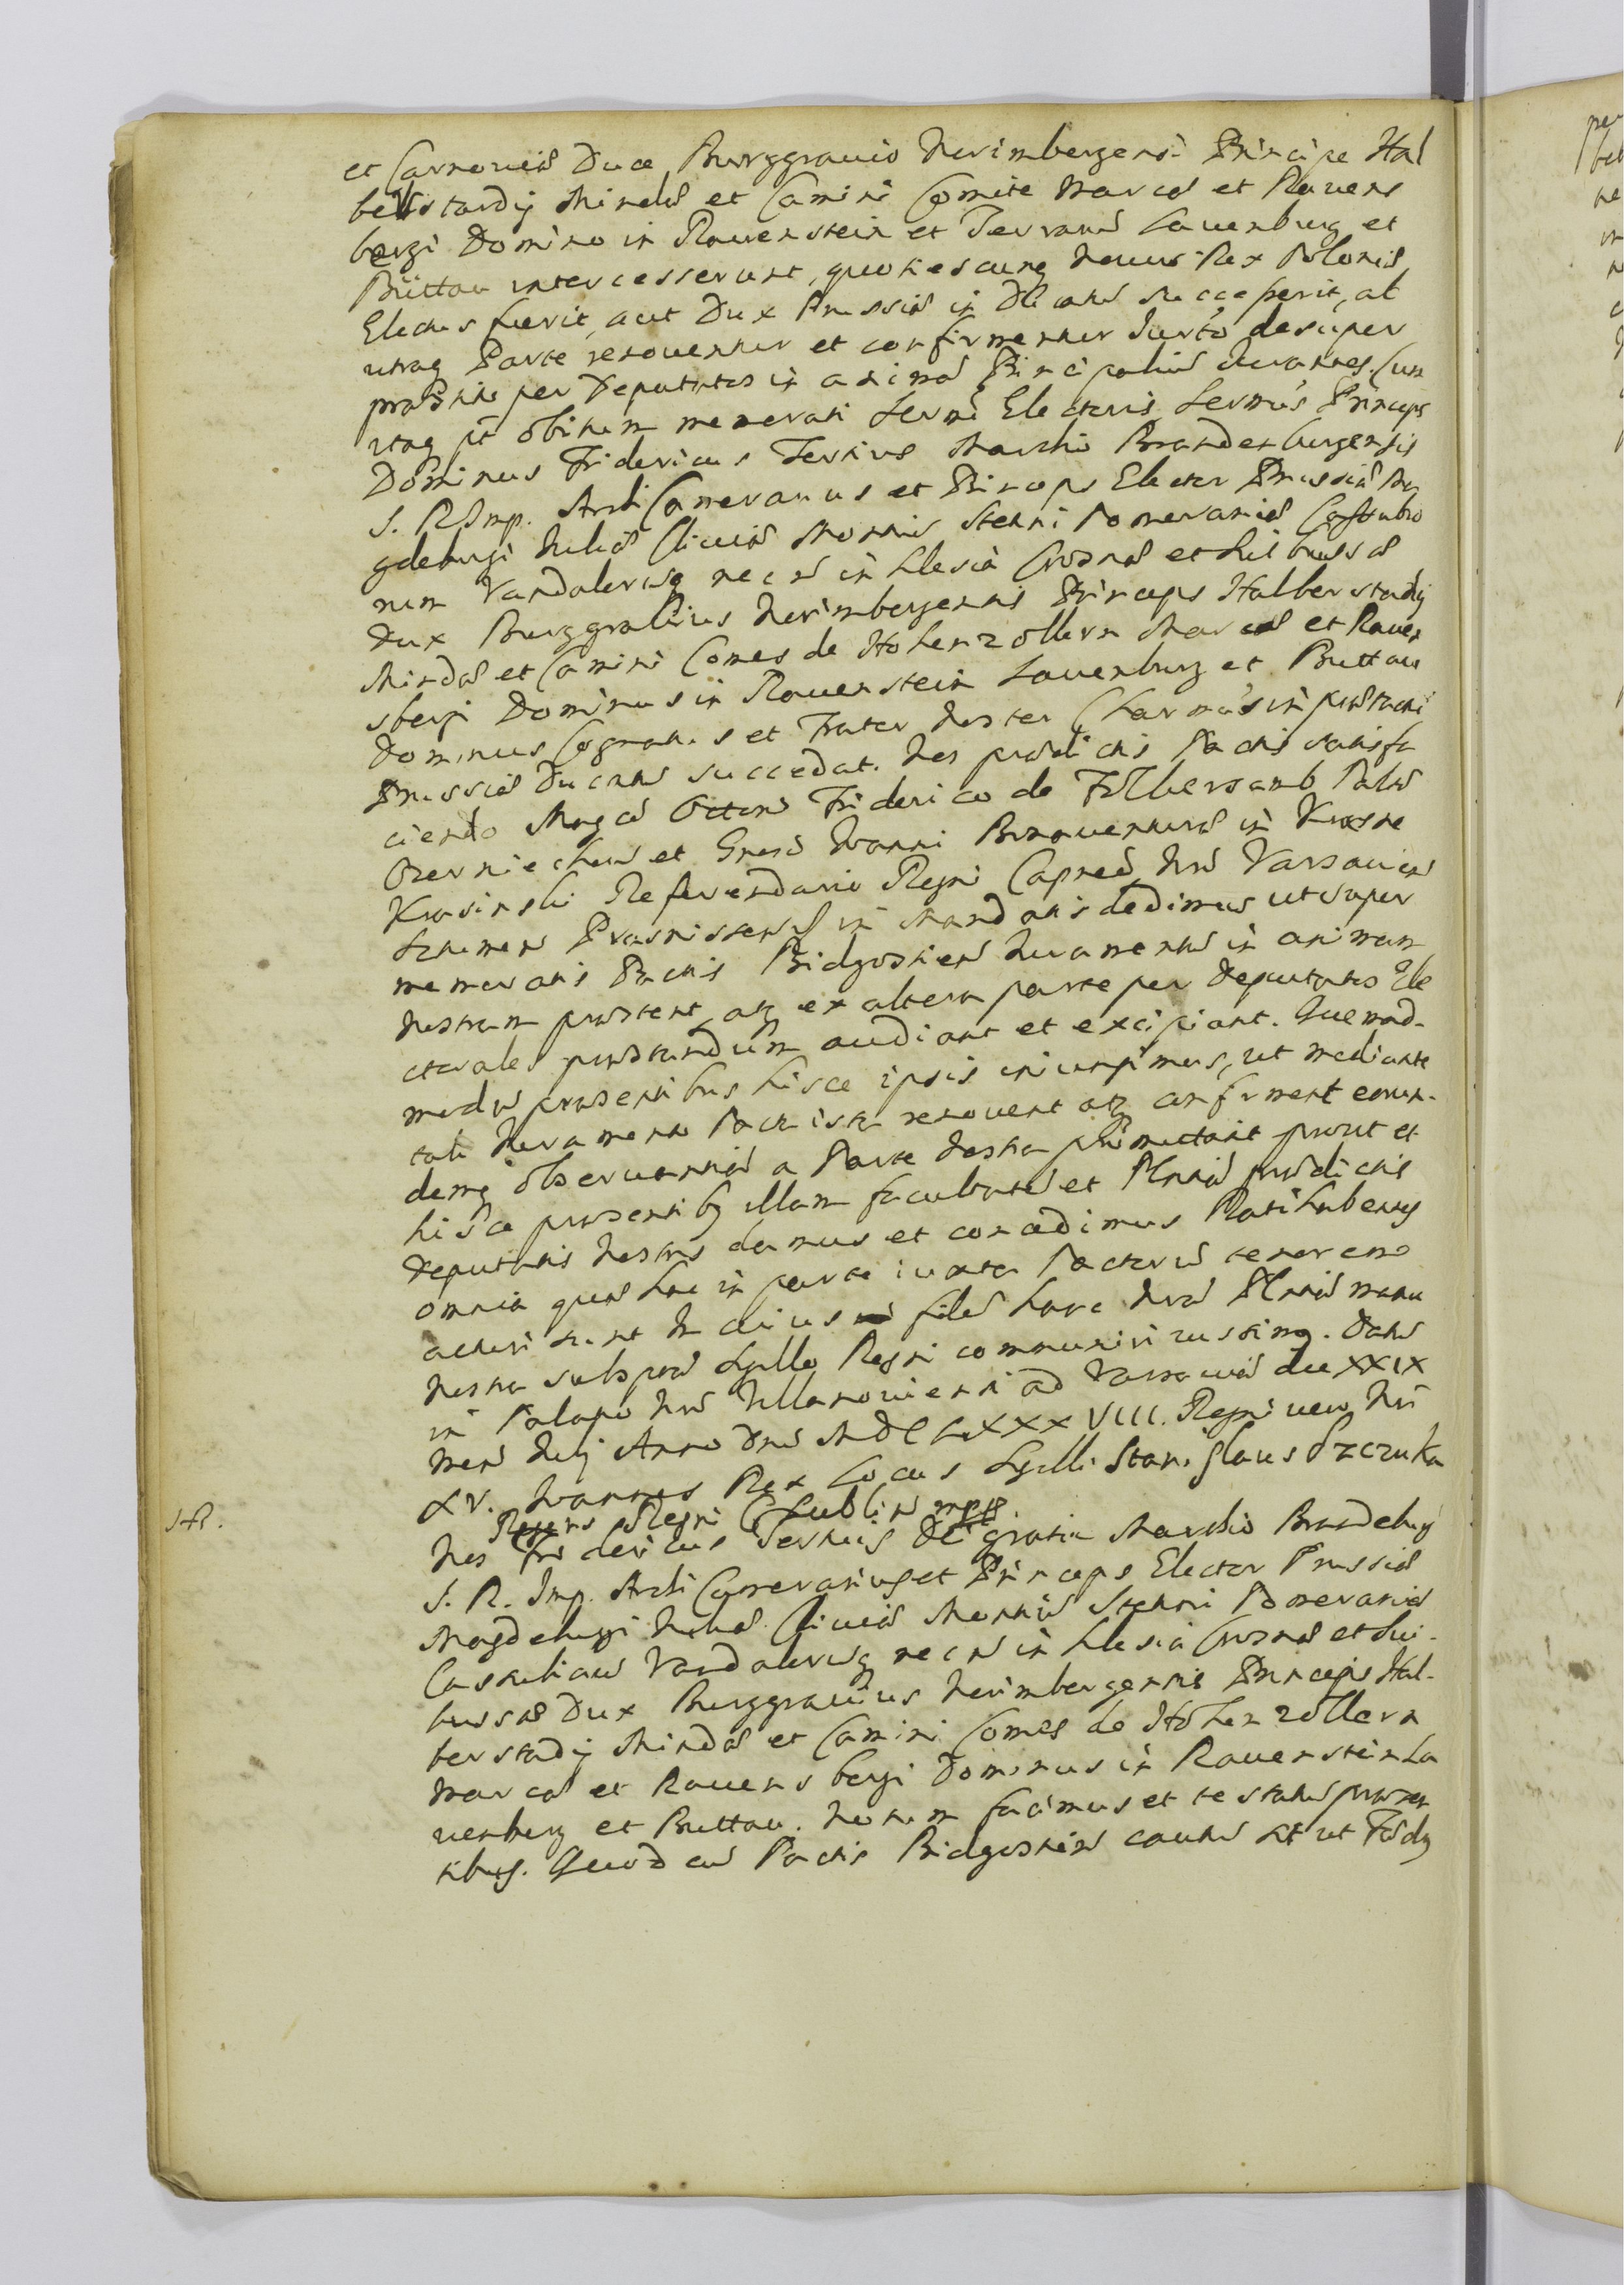 et Carnoviæ Duce Burggravio Norimbergensi Principe Hal
berstadij Mindæ et Camini Comite Marcæ et Ravens
bergi Domino in Ravenstein et Terrarū Lauenburg et
Büttau intercesserunt, quotiescunq novus Rex Poloniæ
Electus fuerit, aut Dux Prussiæ in Ducatū successerit, ab
utraq Parte renoventur et confirmentur Jurto desuper
præstito per Deputatos in animas Principaliū Juramtes. Cum
itaq pt obitum memorati Sermi Electoris Sermus Princeps
Dominus Fridericus Tertius Marchio Brandenburgensis
S. R Imp. Archi Camerarius et Princeps Elector Prussiæ Ma
gdeburgi Juliæ Cliviæ Montiū Stetini Pomeraniæ Cassubio
rum Vandalorūq necnō in Slesia Crosnæ et Suibussiæ
Dux Burggravius Norimbergensis Princeps Halberstadij
Mindæ et Camini Comes de Hohenzollern Marcæ et Raven
sbergi Dominus in Ravenstein Lauenburg et Buttau
Dominus Cognatus et Frater Noster Charmus in præstati
Prussiæ Ducatū succedat. Nos prædictis Pactis satisfa
ciendo Magco Ottoni Friderico de Fölkersamb Palno
Czerniechov et Gnoso Joanni Bonaventuræ in Krasne
Krasinski Referendario Regni Capneo Nro Varsavien
Schimen Prasnissensi in mandatis dedimus ut super
memoratis Pactis Bidgostien Juramentū in animam
Nostram præstent, atq ex altera parte per Deputatos Ele
ctorales præstandum audiant et excipiant. Quemad-
modū præsentibus hisce ipsis iniungimus, ut mediante
tali Juramento Pacta ista renovent atq confirment eorun-
demq observantiā a Parte Nostra promittant prout et
hisce præsentibq illam facultatē et Pltatē prædictis
Deputatis Nostris damus et concedimus Ratihabentes
omnia quæ hac in parte iuxta Pactorū tenorem
acturi sunt In cuius fidē hanc Nrā Pltatē manu
Nostra subsptā Sgillo Regni communiri iussimq. Datū
in Palatio Nro Villanoviensi ad Varsaviā die XXIX
Mens Julij Anno Dni MDCLXXXVIII. Regni vero Nri
XV. Joannes Rex Locus Sgilli Stanislaus Szczuka
Regens Regni C Lublin mpp.
Nos Fridericus Tertius Dei gratia Marchio Brandeburg
S. R. Imp. Archi Camerarius et Princeps Elector Prussiæ
Magdeburgi Juliæ Cliviæ Montiū Stetini Pomeraniæ
Cassubiaū Vandalorūq necnō in Slesia Crosnæ et Sui-
bussiæ Dux Burggravius Norimbergensis Princeps Hal-
berstadij Mindæ et Camini Comes de Hohenzollern
Marcæ et Ravensbergi Dominus in Ravenstein La
uenburg et Buttau. Notum facimus et testatū præsen
tibus. Quod cū Pactis Bidgostien cautū sit ut Fœdq